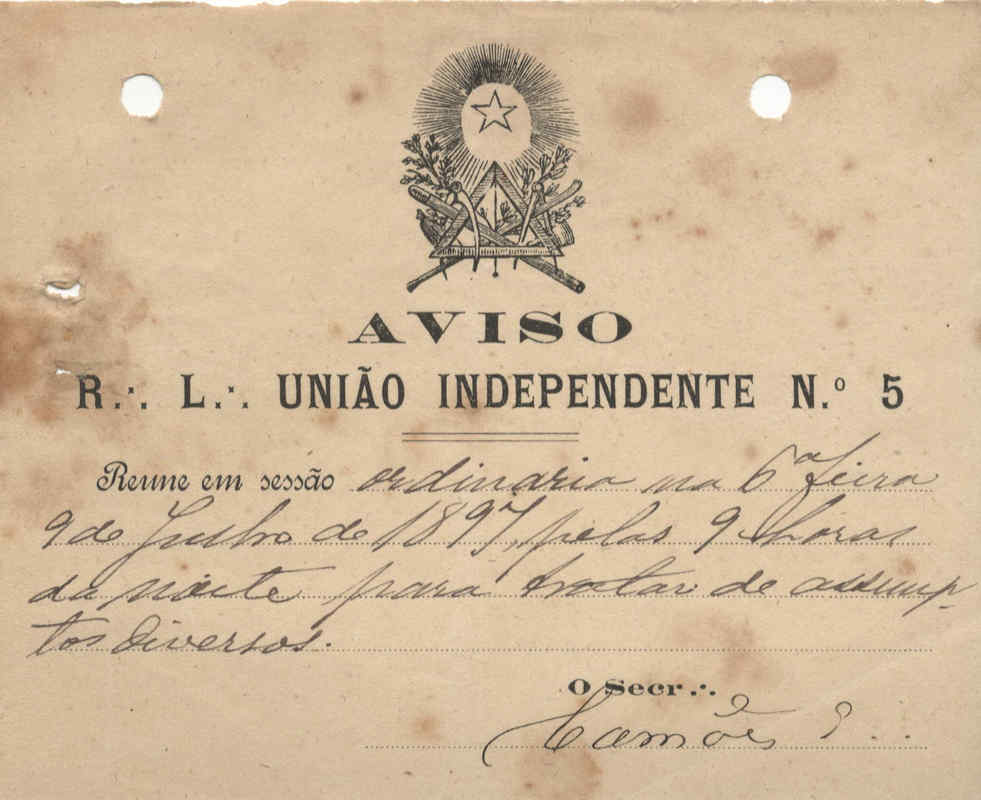 AVISO
R.·. L.·. UNIÃO INDEPENDENTE N.º 5
Reune em sessão ordinaria na 6ª feira
9 de Julho de 1897, pelas 9 horas
da noite para tratar de assump-
tos diversos.
O Secr.·.
Camões